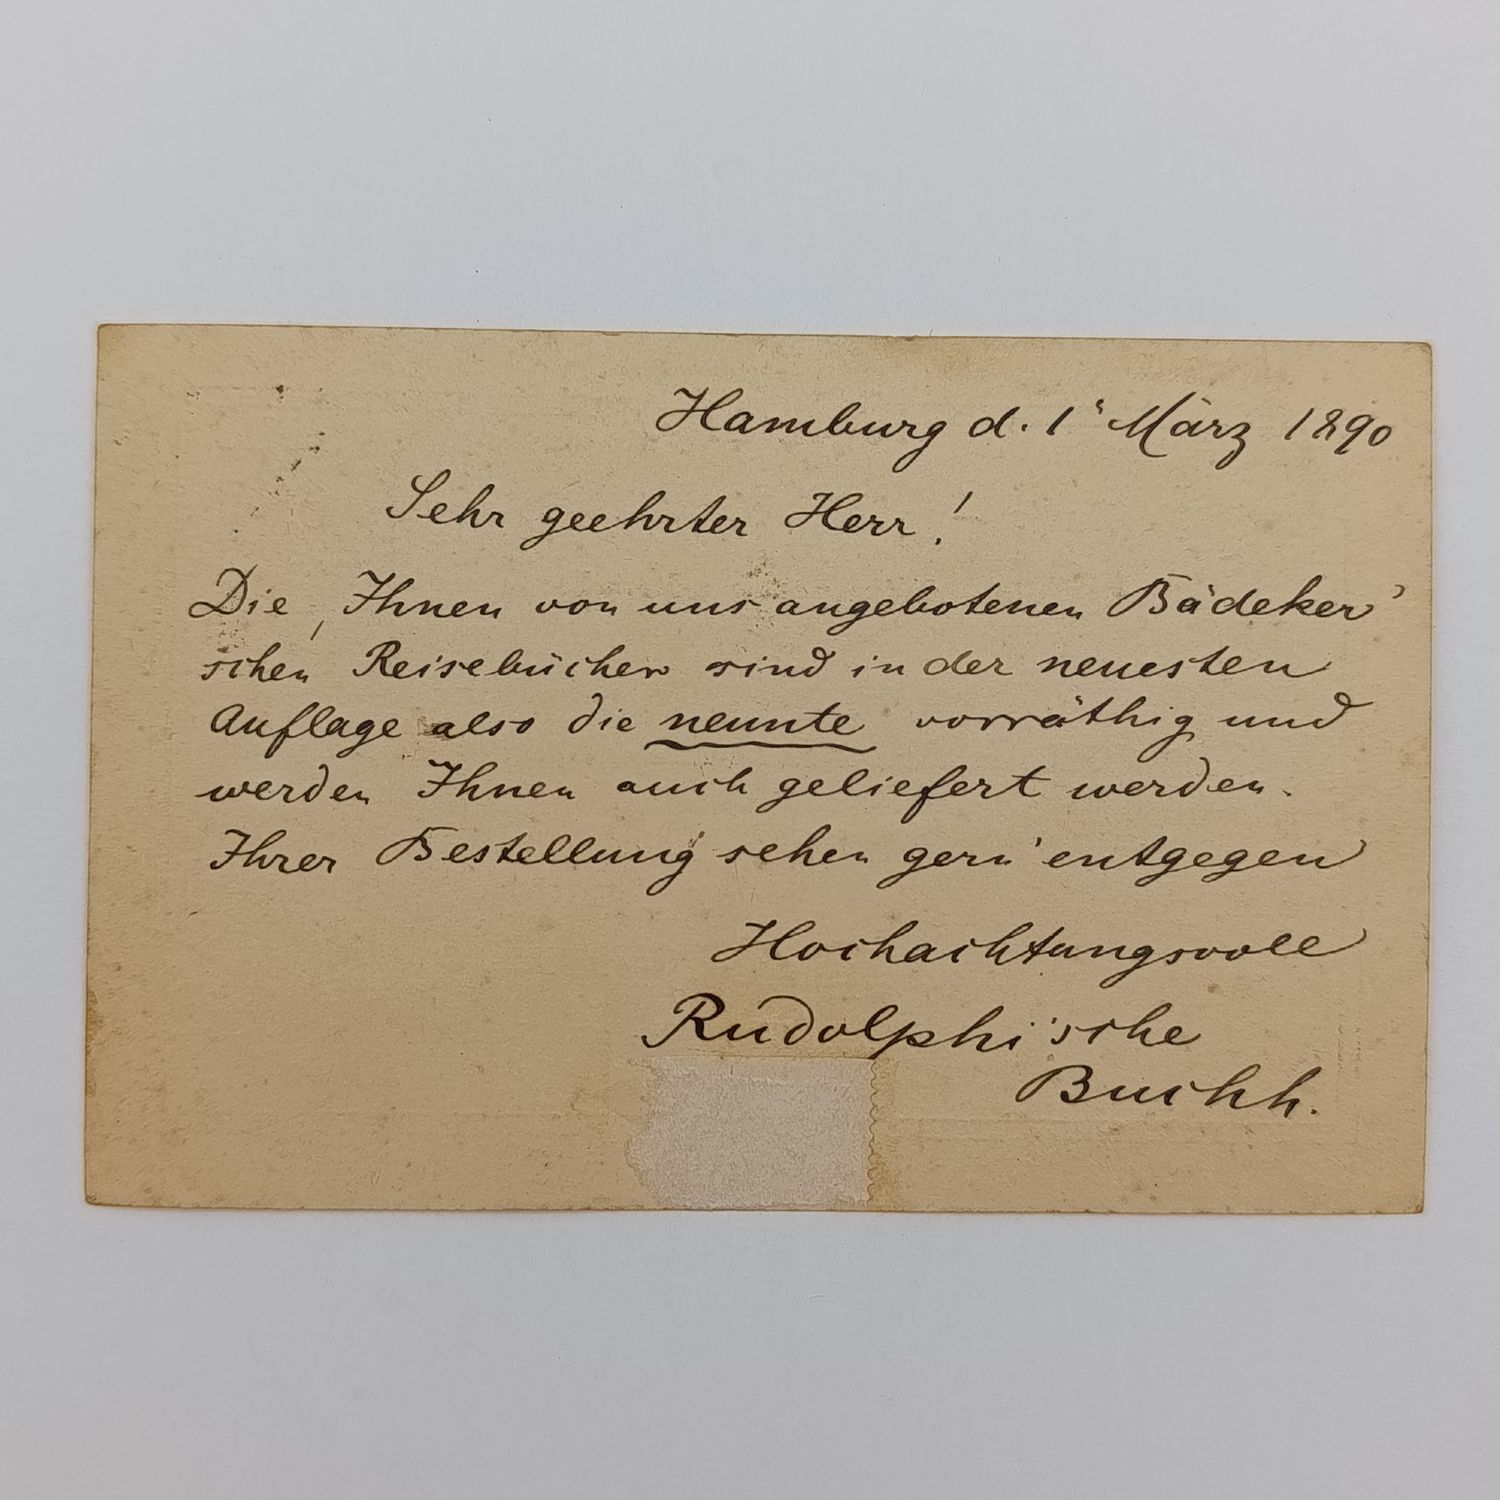 Hamburg d. 1' März 1890
Sehr geehrter Herr!
Die, Ihnen von uns angebotenen Bädeker'
schen Reisebücher sind in der neuesten
Auflage also die neunte vorräthig und
werden Ihnen auch geliefert werden.
Ihrer Bestellung sehen gern entgegen
Hochachtungsvoll
Rudolphi'sche
Buchh.